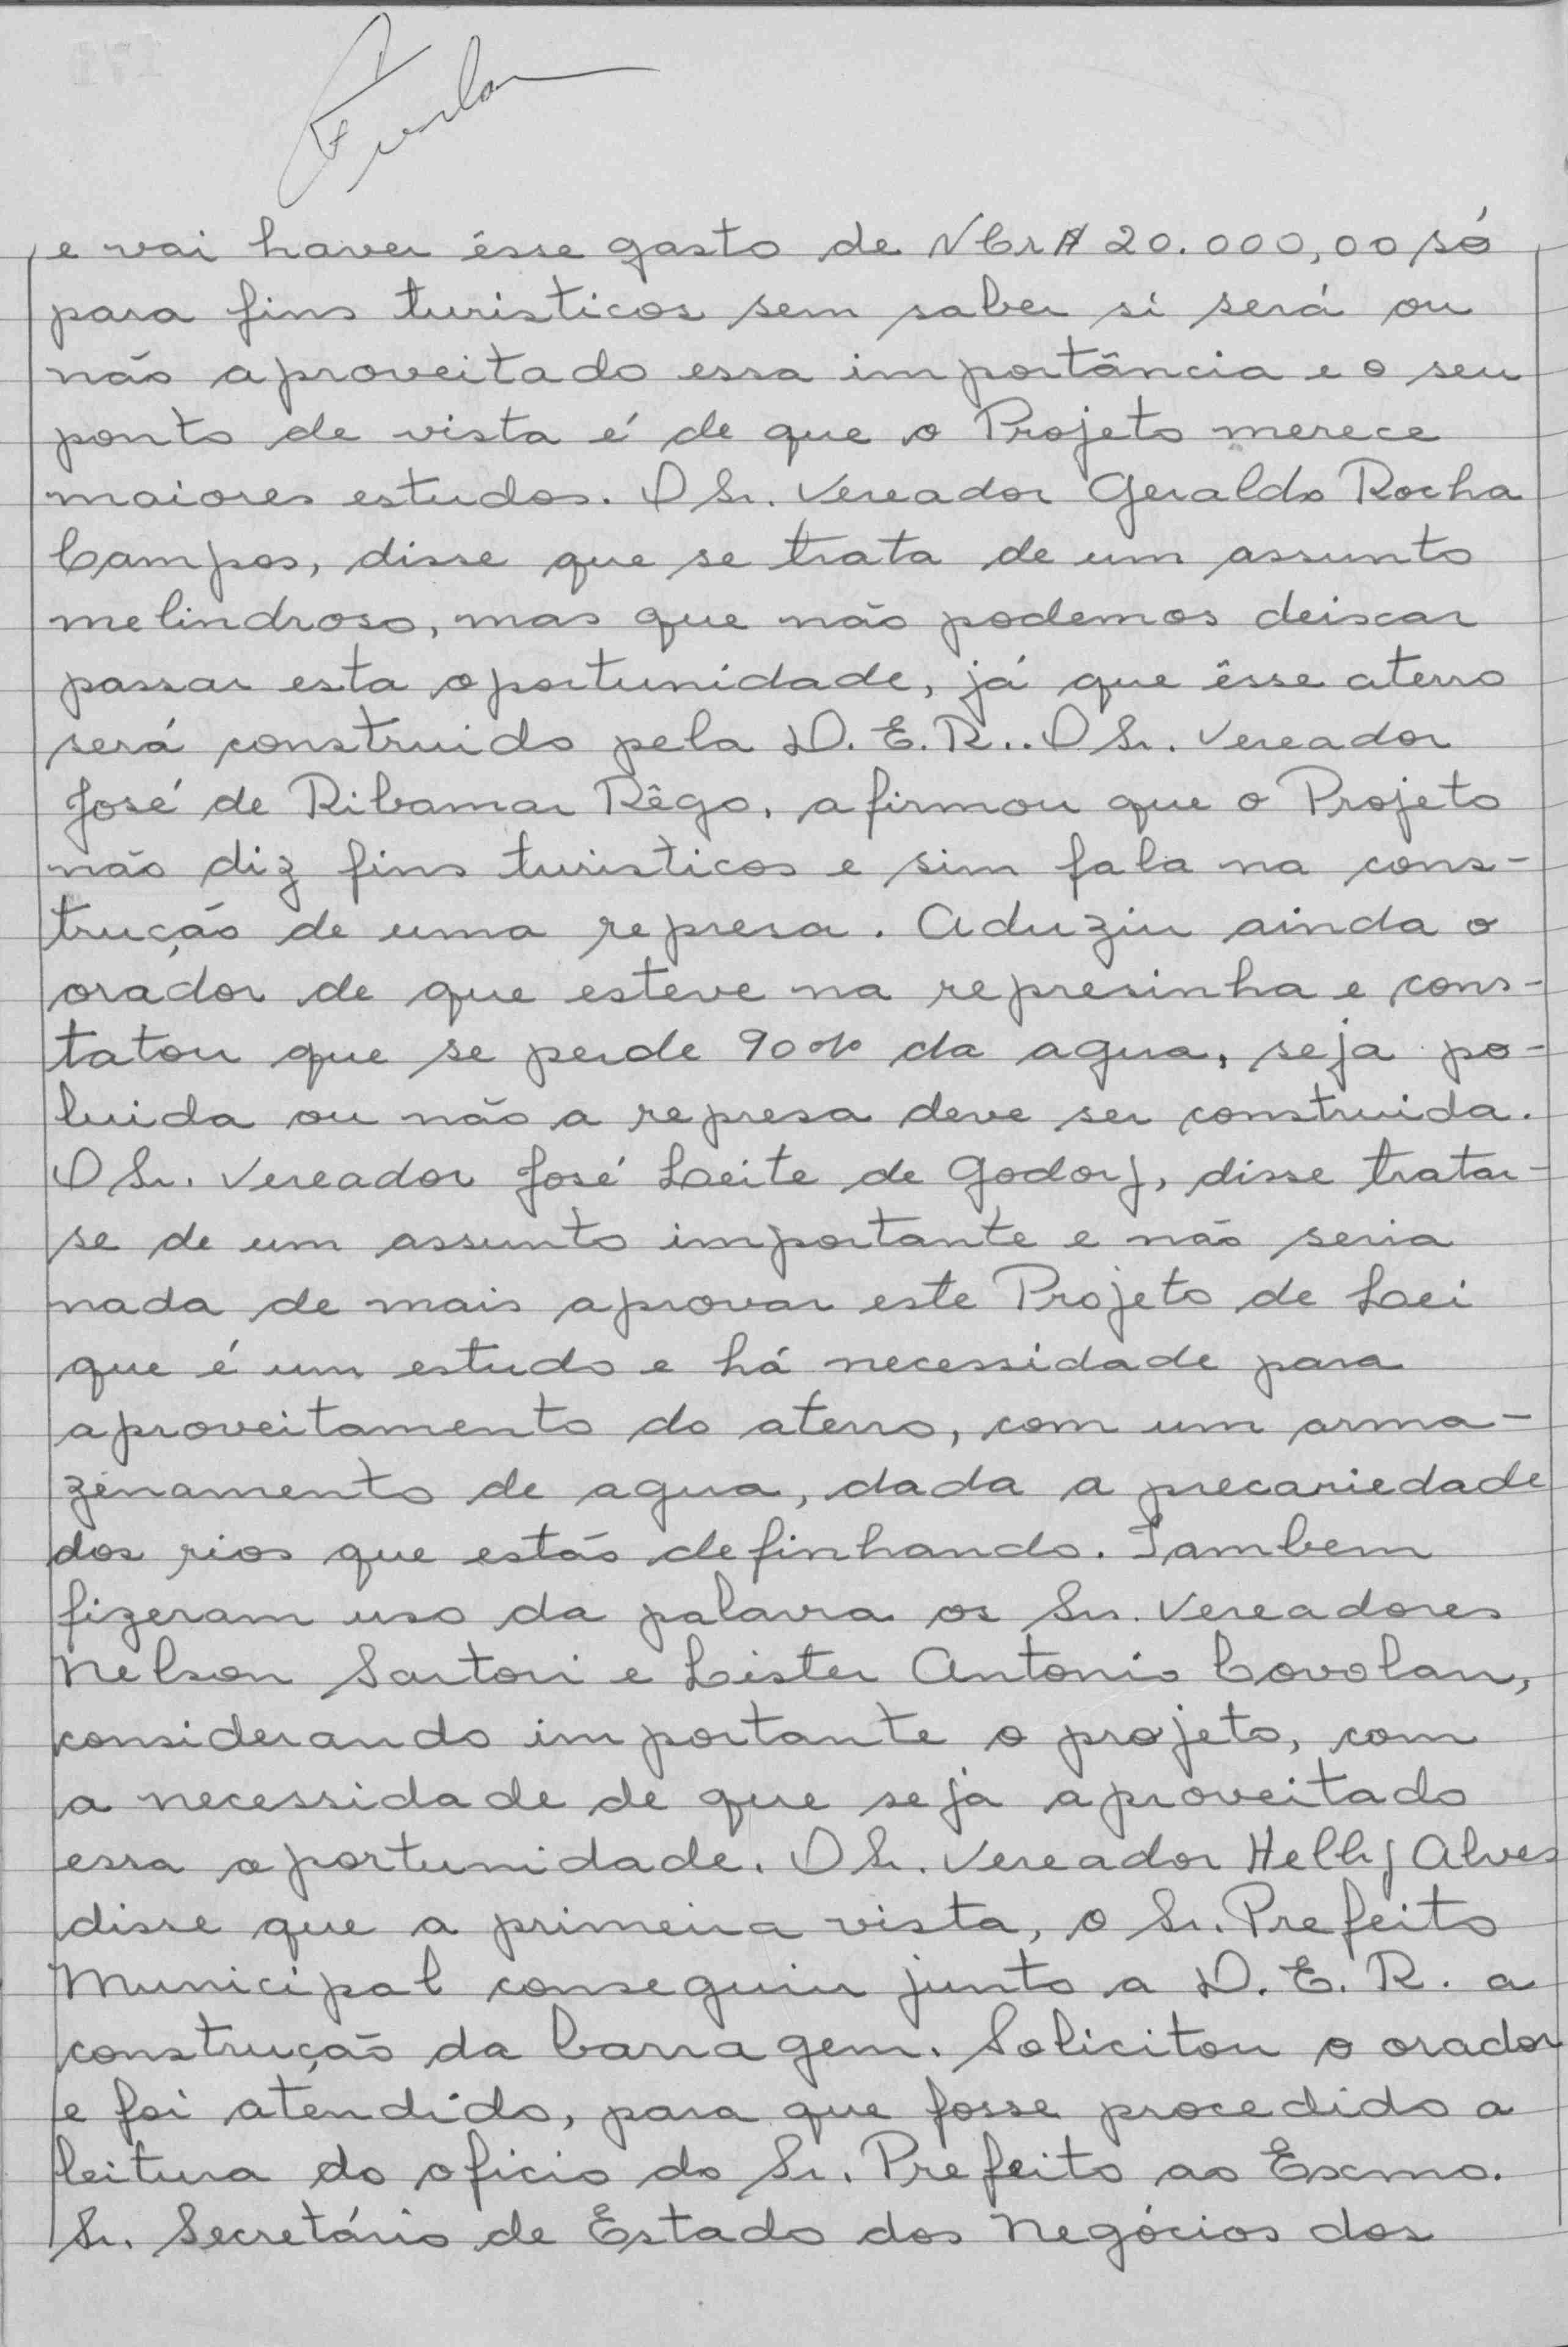 e vai haver êsse gasto de NCr$ 20.000,00 só
para fins turisticos sem saber si será ou
não aproveitado essa importância e o seu
ponto de vista é de que o Projeto merece
maiores estudos. O Sr. Vereador Geraldo Rocha
Campos, disse que se trata de um assunto
melindroso, mas que não podemos deixar
passar esta oportunidade, já que êsse aterro
será construido pela D. E. R.. O Sr. Vereador
José de Ribamar Rêgo, afirmou que o Projeto
não diz fins turisticos e sim fala na cons-
trução de uma represa. Aduziu ainda o
orador de que esteve na represinha e cons-
tatou que se perde 90% da agua, seja po-
luida ou não a represa deve ser construida.
O Sr. Vereador José Leite de Godoy, disse tratar-
se de um assunto importante e não seria
nada de mais aprovar este Projeto de Lei
que é um estudo e há necessidade para
aproveitamento do aterro, com um arma-
zenamento de agua, dada a precariedade
dos rios que estão definhando. Tambem
fizeram uso da palavra os Srs. Vereadores
Nelson Sartori e Lister Antonio Covolan,
considerando importante o projeto, com
a necessidade de que seja aproveitado
essa oportunidade. O Sr. Vereador Helly Alves
disse que a primeira vista, o Sr. Prefeito
Municipal conseguiu junto a D. E. R. a
construção da barragem. Solicitou o orador
e foi atendido, para que fosse procedido a
leitura do oficio do Sr. Prefeito ao Exmo.
Sr. Secretário de Estado dos Negócios dos